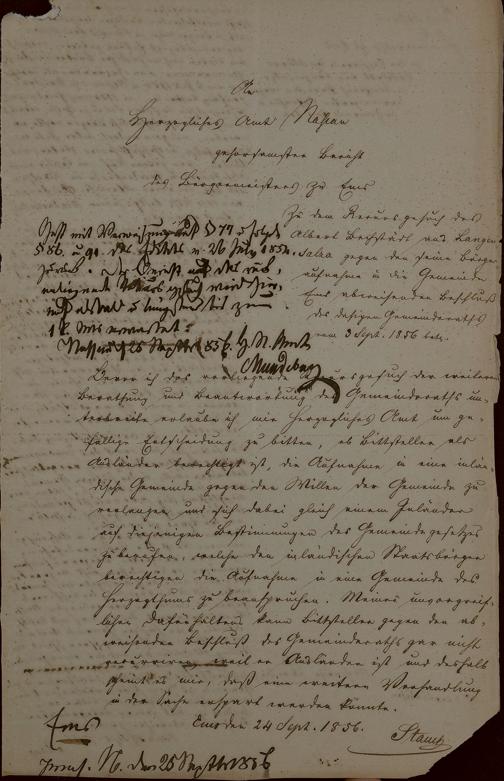 An
Herzogliches Amt Nassau
gehorsamster Bericht
des Bürgermeisters zu Ems
Zu dem Recursgesuch des
Albert Bechstädt aus Langen-
salza gegen den seine Bürger-
aufnahme in die Gemeinde
Ems abweisenden Beschluß
des dasigen Gemeinderaths
vom 3 Sept. 1856 betr.
Geht mit Verweisung auf § 77
§ 86. u. 91 des v. 26 July 1854
zurück. Der Bericht auf das
wird
und alsbald längstens bis zum
1 erwartet.
Nassau 25 Septbr 856. H. N. Amt
Bevor ich das vorliegende Recursgesuch der weiteren
Berathung und Beantwortung des Gemeinderaths un-
terbreite erlaube ich mir Herzogliches Amt um ge-
fällige Entscheidung zu bitten, ob Bittsteller als
Ausländer berechtigt ist, die Aufnahme in eine inlän-
dische Gemeinde gegen den Willen der Gemeinde zu
verlangen und sich dabei gleich einem Inländer
auf diejenigen Bestimmungen des Gemeindegesetzes
zu berufen, welche den inländischen Staatsbürger
berechtigen die Aufnahme in eine Gemeinde des
Herzogthums zu beanspruchen. Meines unvorgreif-
lichen Dafürhaltens kann Bittsteller gegen den ab-
weisenden Beschluß des Gemeinderaths gar nicht
recurriren, weil er Ausländer ist und deshalb
scheint es mir, daß eine weitere Verhandlung
in der Sache erspart werden könnte.
Ems den 24 Sept. 1856.
Ems
Präs. N. den 25 Septbr 1856